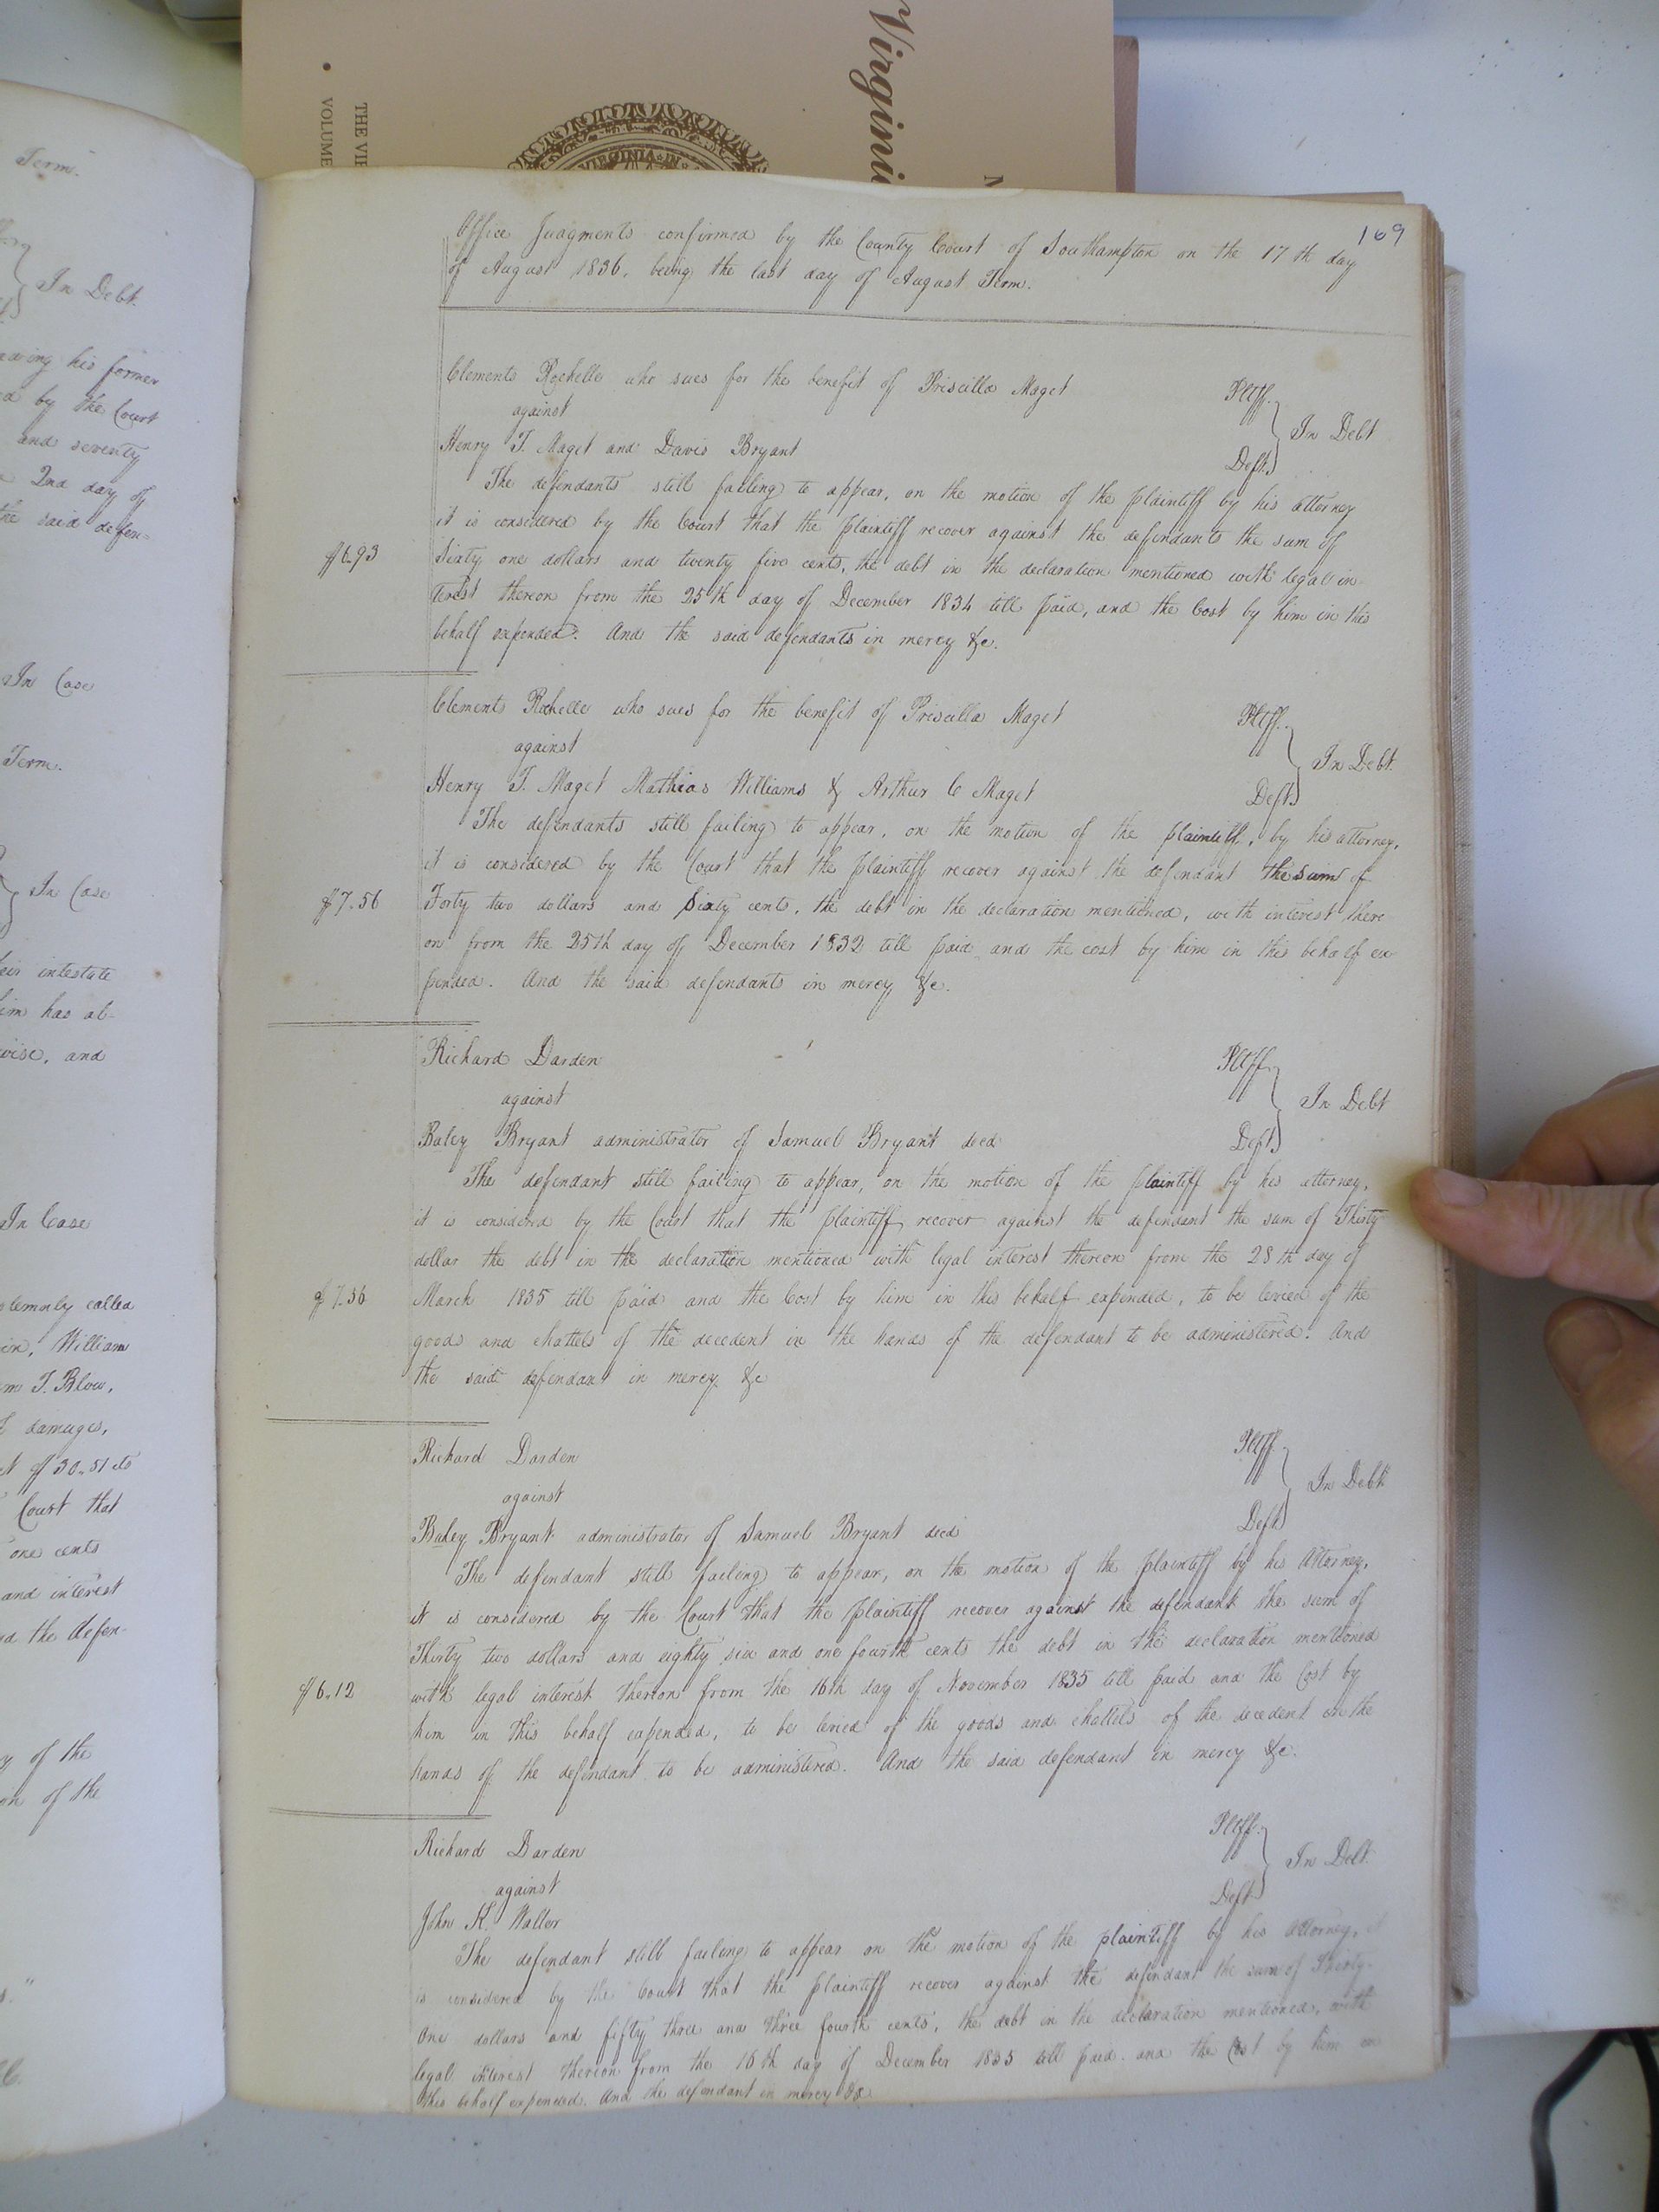 Virgini
THE VI
VOLUME
VIRGINIA IN
Term.
In Debt.
his former
by the Court
and seventy
2nd day of
the said defen=
In Case
Term.
In Case
intestate
him has al-
wise, and
In Case
solemnly called
in, William
m T. Blow,
damages,
of $30.51 cts
Court that
one cents
and interest
the defen-
of the
on of the
169
Office Judgments confirmed by the County Court of Southampton on the 17th day
of August 1836, being the last day of August Term.
Clements Rochelle who sues for the benefit of Priscilla Maget Pltff.
against In Debt
Henry T. Maget and Davis Bryant Defts
The defendants still failing to appear, on the motion of the plaintiff by his attorney
it is considered by the Court that the plaintiff recover against the defendants the sum of
$6.93 Sixty one dollars and twenty five cents, the debt in the declaration mentioned with legal in-
terest thereon from the 25th day of December 1834 till paid, and the Cost by him in this
behalf expended. And the said defendants in mercy &c.
Clements Rochelle who sues for the benefit of Priscilla Maget Pltff.
against In Debt.
Henry T. Maget Mathias Williams & Arthur C Maget Defts
The defendants still failing to appear, on the motion of the plaintiff, by his attorney,
it is considered by the Court that the plaintiff recover against the defendant the sum of
$7.56 Forty two dollars and Sixty cents, the debt in the declaration mentioned, with interest there
on from the 25th day of December 1832 till paid and the cost by him in this behalf ex
pended. And the said defendants in mercy &c.
Richard Darden Pltff.
against In Debt
Baley Bryant administrator of Samuel Bryant decd Deft
The defendant still failing to appear, on the motion of the plaintiff by his attorney,
it is considered by the Court that the plaintiff recover against the defendant the sum of Thirty
dollar the debt in the declaration mentioned with legal interest thereon from the 28th day of
$7.56 March 1835 till paid and the Cost by him in this behalf expended, to be levied of the
goods and chattels of the decedent in the hands of the defendant to be administered. And
the said defendant in mercy &c
Richard Darden Pltff.
against In Debt
Baley Bryant administrator of Samuel Bryant decd Deft
The defendant still failing to appear, on the motion of the plaintiff by his Attorney,
it is considered by the Court that the plaintiff recover against the defendant the sum of
Thirty two dollars and eighty six and one fourth cents the debt in the declaration mentioned
$6.12 with legal interest thereon from the 16th day of November 1835 till paid and the Cost by
him in this behalf expended, to be levied of the goods and chattels of the decedent in the
hands of the defendant to be administered. And the said defendant in mercy &c.
Richard Darden Pltff.
against In Debt.
John K. Waller Deft
The defendant still failing to appear on the motion of the plaintiff by his attorney, it
is considered by the Court that the plaintiff recover against the defendant the sum of Thirty
One dollars and fifty three and three fourth cents, the debt in the declaration mentioned, with
legal interest thereon from the 16th day of December 1835 till paid. and the Cost by him in
this behalf expended. And the defendant in mercy &c